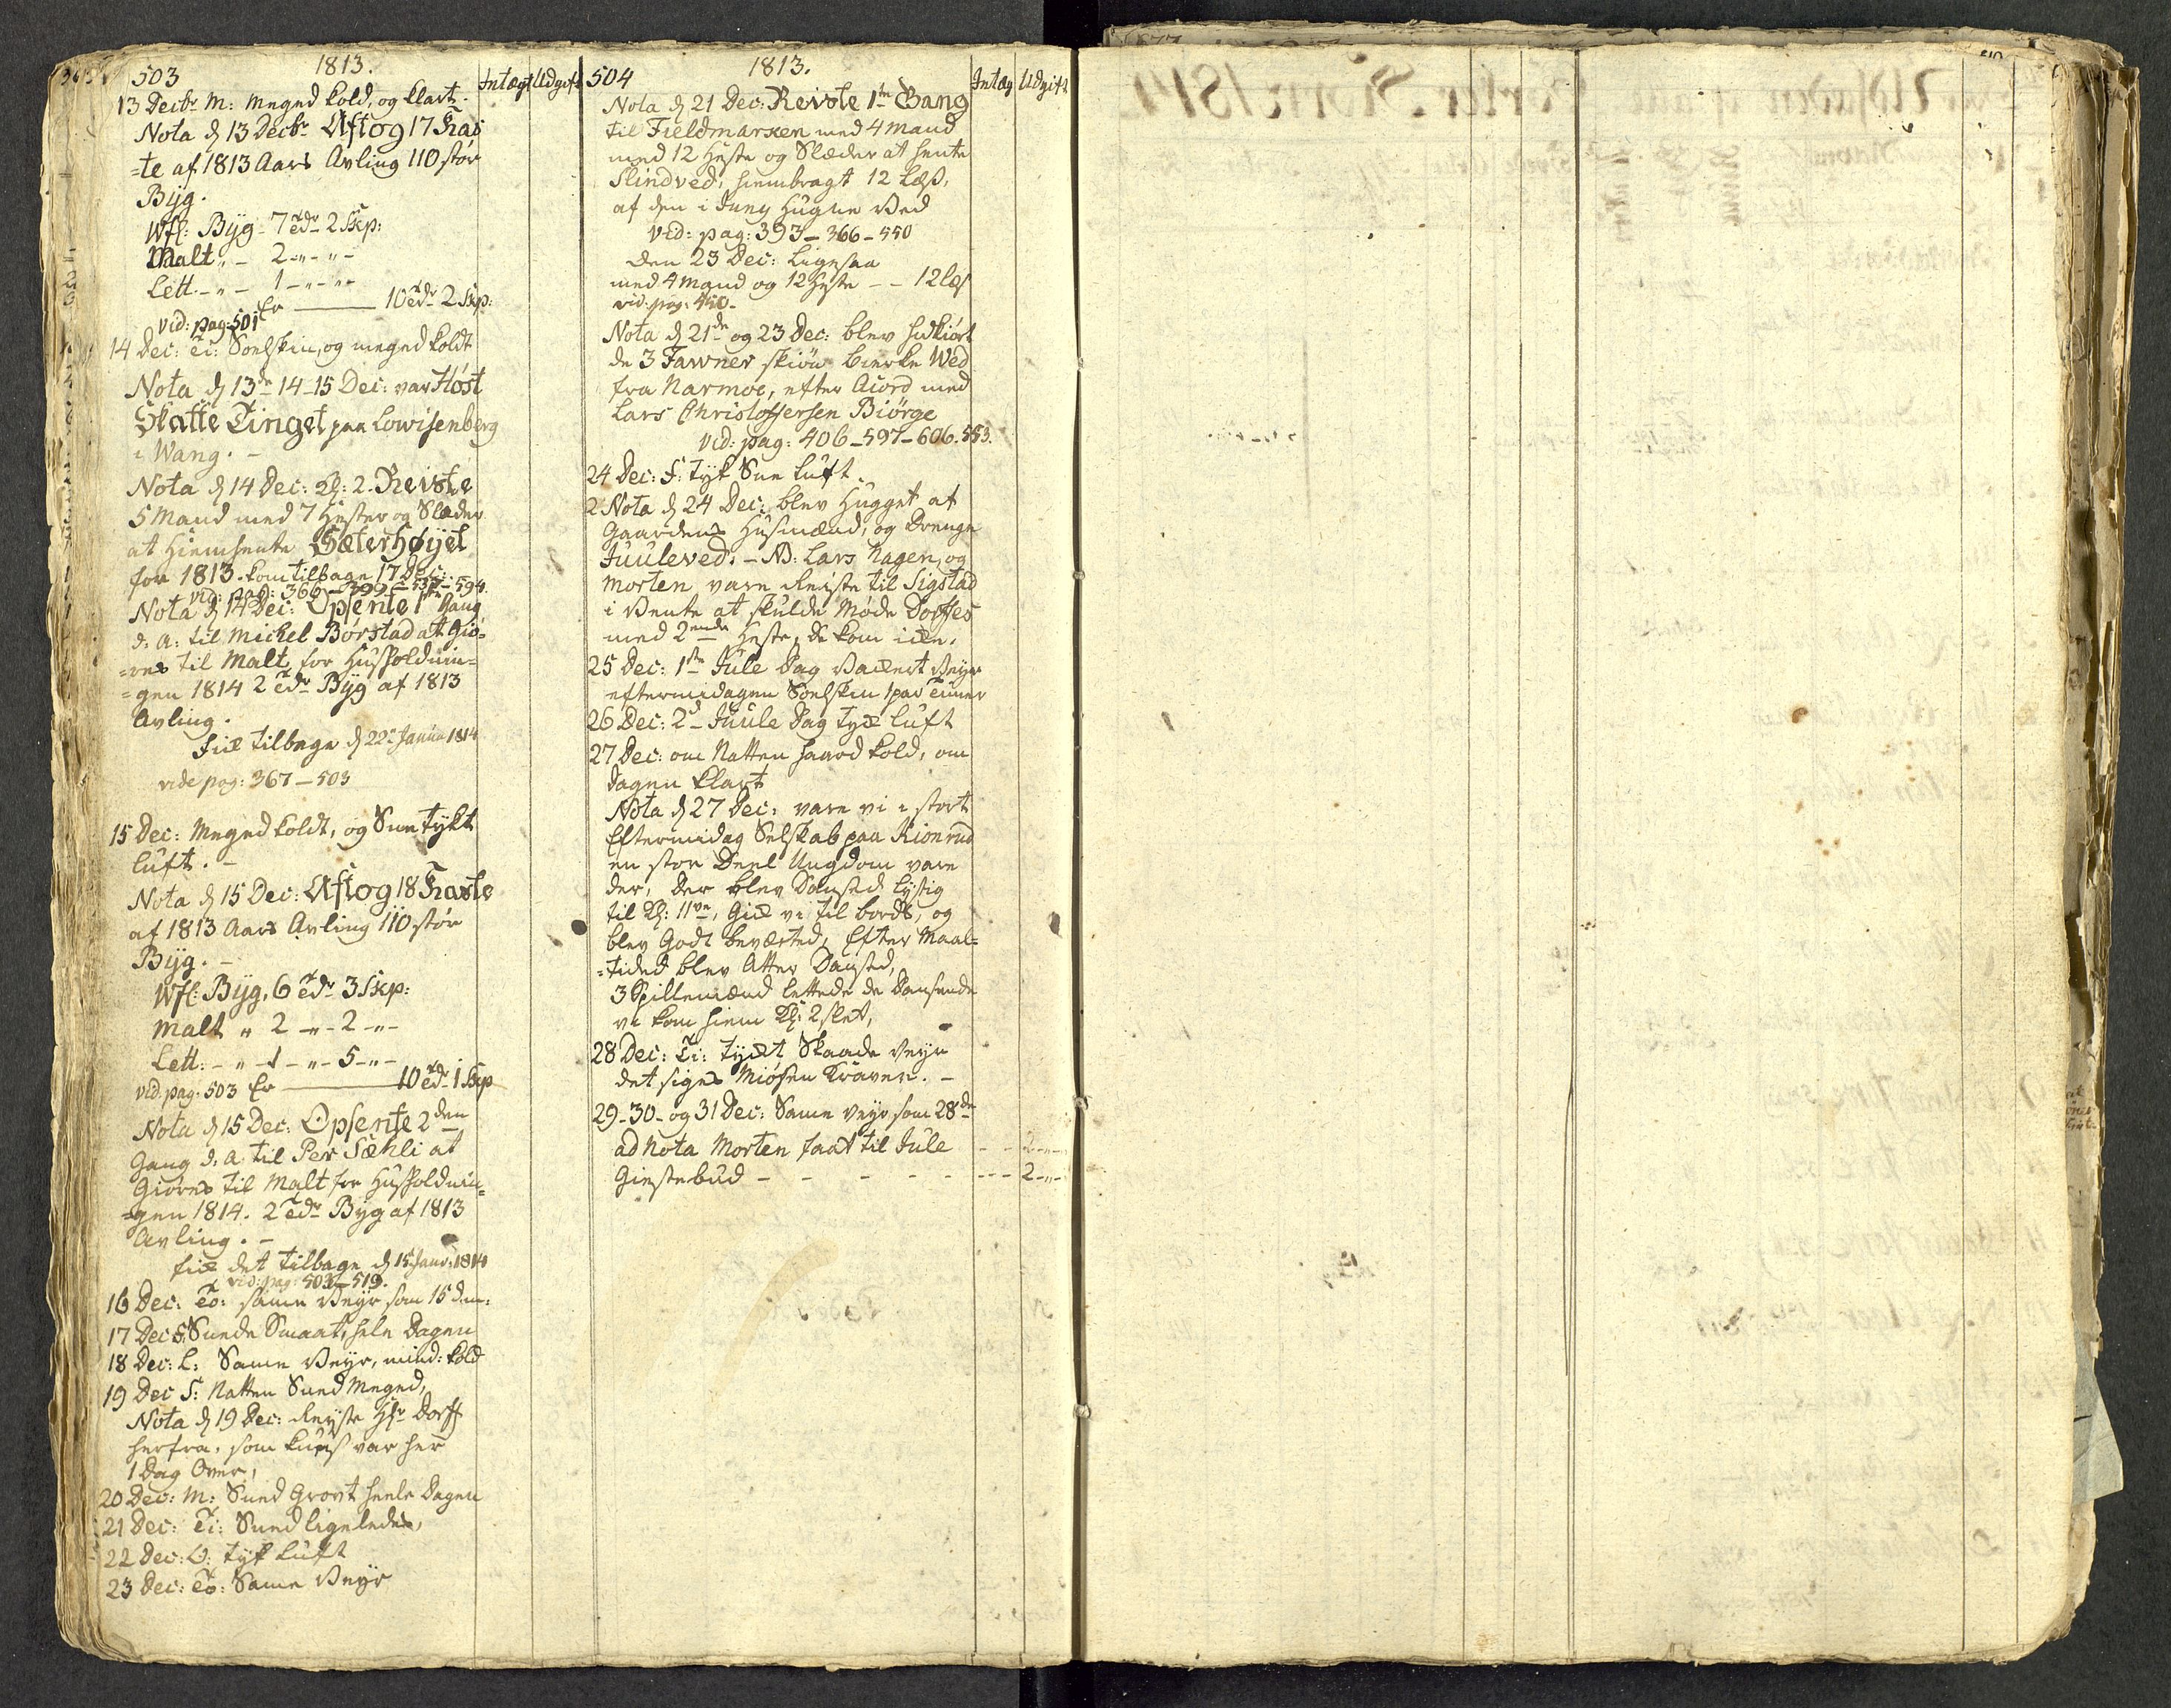 503 1813. Intægt Udgift
13 Decbr M: Meged kold, og klart.
Nota d 13 Decbr Aftog 17 Kas
=te af 1813 Aars Avling 110 stör
Byg.
Wfl: Byg 7 Tdr 2 Skp:
Malt " - 2 - " - " -
Lett - " - 1 - " - " -
vid: pag: 501 Er ——— 10 Tdr 2 Skp:
14 Dec: Ti: Soelskin, og meged koldt
Nota d 13de 14-15 Dec: var Höst
Skatte Tinget paa Lowisenberg
i Wang. -
Nota d 14 Dec: Kl: 2. Reiste
5 Mand med 7 Hester og Slæder
at hiemhente Sæterhøyet
for 1813. kom tilbage 17 Dec:
vid: pag: 366-399-535-594.
Nota d 14 Dec: Opsente 1te Gang
d. a. til Michel Børstad at Giö=
=res til Malt for Huusholdnin=
=gen 1814 2 Tdr Byg af 1813
Avling.
fik tilbage d 22e Januar 1814
vide pag: 367-503
15 Dec: Meged koldt, og Snetykt
luft. -
Nota d 15 Dec: Aftog 18 Kaste
af 1813 Aars Avling 110 stör
Byg. -
Wfl: Byg, 6 Tdr 3 Skp:
Malt " 2 - " - 2 - " -
Lett: - " - 1 - " - 5 - " -
vid. pag. 503 Er ——— 10 Tdr 1 Skp
Nota d 15 Dec: Opsente 2den
Gang d. a. til Per Sæhli at
Giöres til Malt for Huusholdnin=
=gen 1814. 2 Tdr Byg af 1813
Avling. -
fik det tilbage d 15 Janr: 1814
vid: pag: 503-519.
16 Dec: To: same Veyr som 15 den:
17 Dec F: Snede Smaat, hele Dagen
18 Dec: L: Same Veyr, mind: kold
19 Dec S: Natten Sned Meged,
Nota d 19 Dec: Reyste Hr Dorff
herfra, som kuns var her
1 Dag Over,
20 Dec: M: Sned Grovt heele Dagen
21 Dec: Ti: Sned ligeledes,
22 Dec: O: tyk Luft
23 Dec: To: Same Veyr
504 1813. Intæg Udgift
Nota d 21 Dec: Reiste 1te Gang
til Fieldmarken med 4 Mand
med 12 Heste og Slæder at hente
Slindved, hiembragt 12 Læs,
af den i Juny Hugne Ved
vid: pag: 393-366-550
den 23 Dec: Ligesaa
med 4 Mand og 12 Heste - - 12 læs
vid: pag: 450-
Nota d 21de og 23 Dec: blev hidkiört
de 3 Fawner skiön bierke Wed
fra Narmoe, efter Acord med
Lars Christoffersen Biörge
vid: pag: 406-597-606.553.
24 Dec: F: tyk Sne luft.
2 Nota d 24 Dec: blev Hugget at
Gaardens Husmænd, og Drenge
Juuleved. - NB: Lars Hagen, og
Morten vare Reiste til Sigstad
i Vente at skulde Møde Dorffes
med 2ende Heste, de kom ikke.
25 Dec: 1ste Jule Dag Vakkert Veyr
eftermidagen Soelskin 1 par Timer
26 Dec: 2d Juule Dag tyk luft
27 Dec: om Natten haard kold, om
Dagen klart
Nota d 27 Dec: vare vi i stort
Eftermidag Selskab paa Kionrud
en stor Deel Ungdom vare
der, Der blev Danset lystig
til Kl: 11ve, Gik vi til bords, og
blev Godt beværted, Efter Maal=
=tided blev Atter Danset,
3 Spillemænd lettede de Dansende
vi kom hiem Kl: 2 slet,
28 Dec: Ti: tykt Skaade Veyr
det siges Miösen Kraver. -
29-30- og 31 Dec: Same Veyr som 28de
ad Nota Morten faat til Jule
Giestebud - - - - - - - - 2 - " -